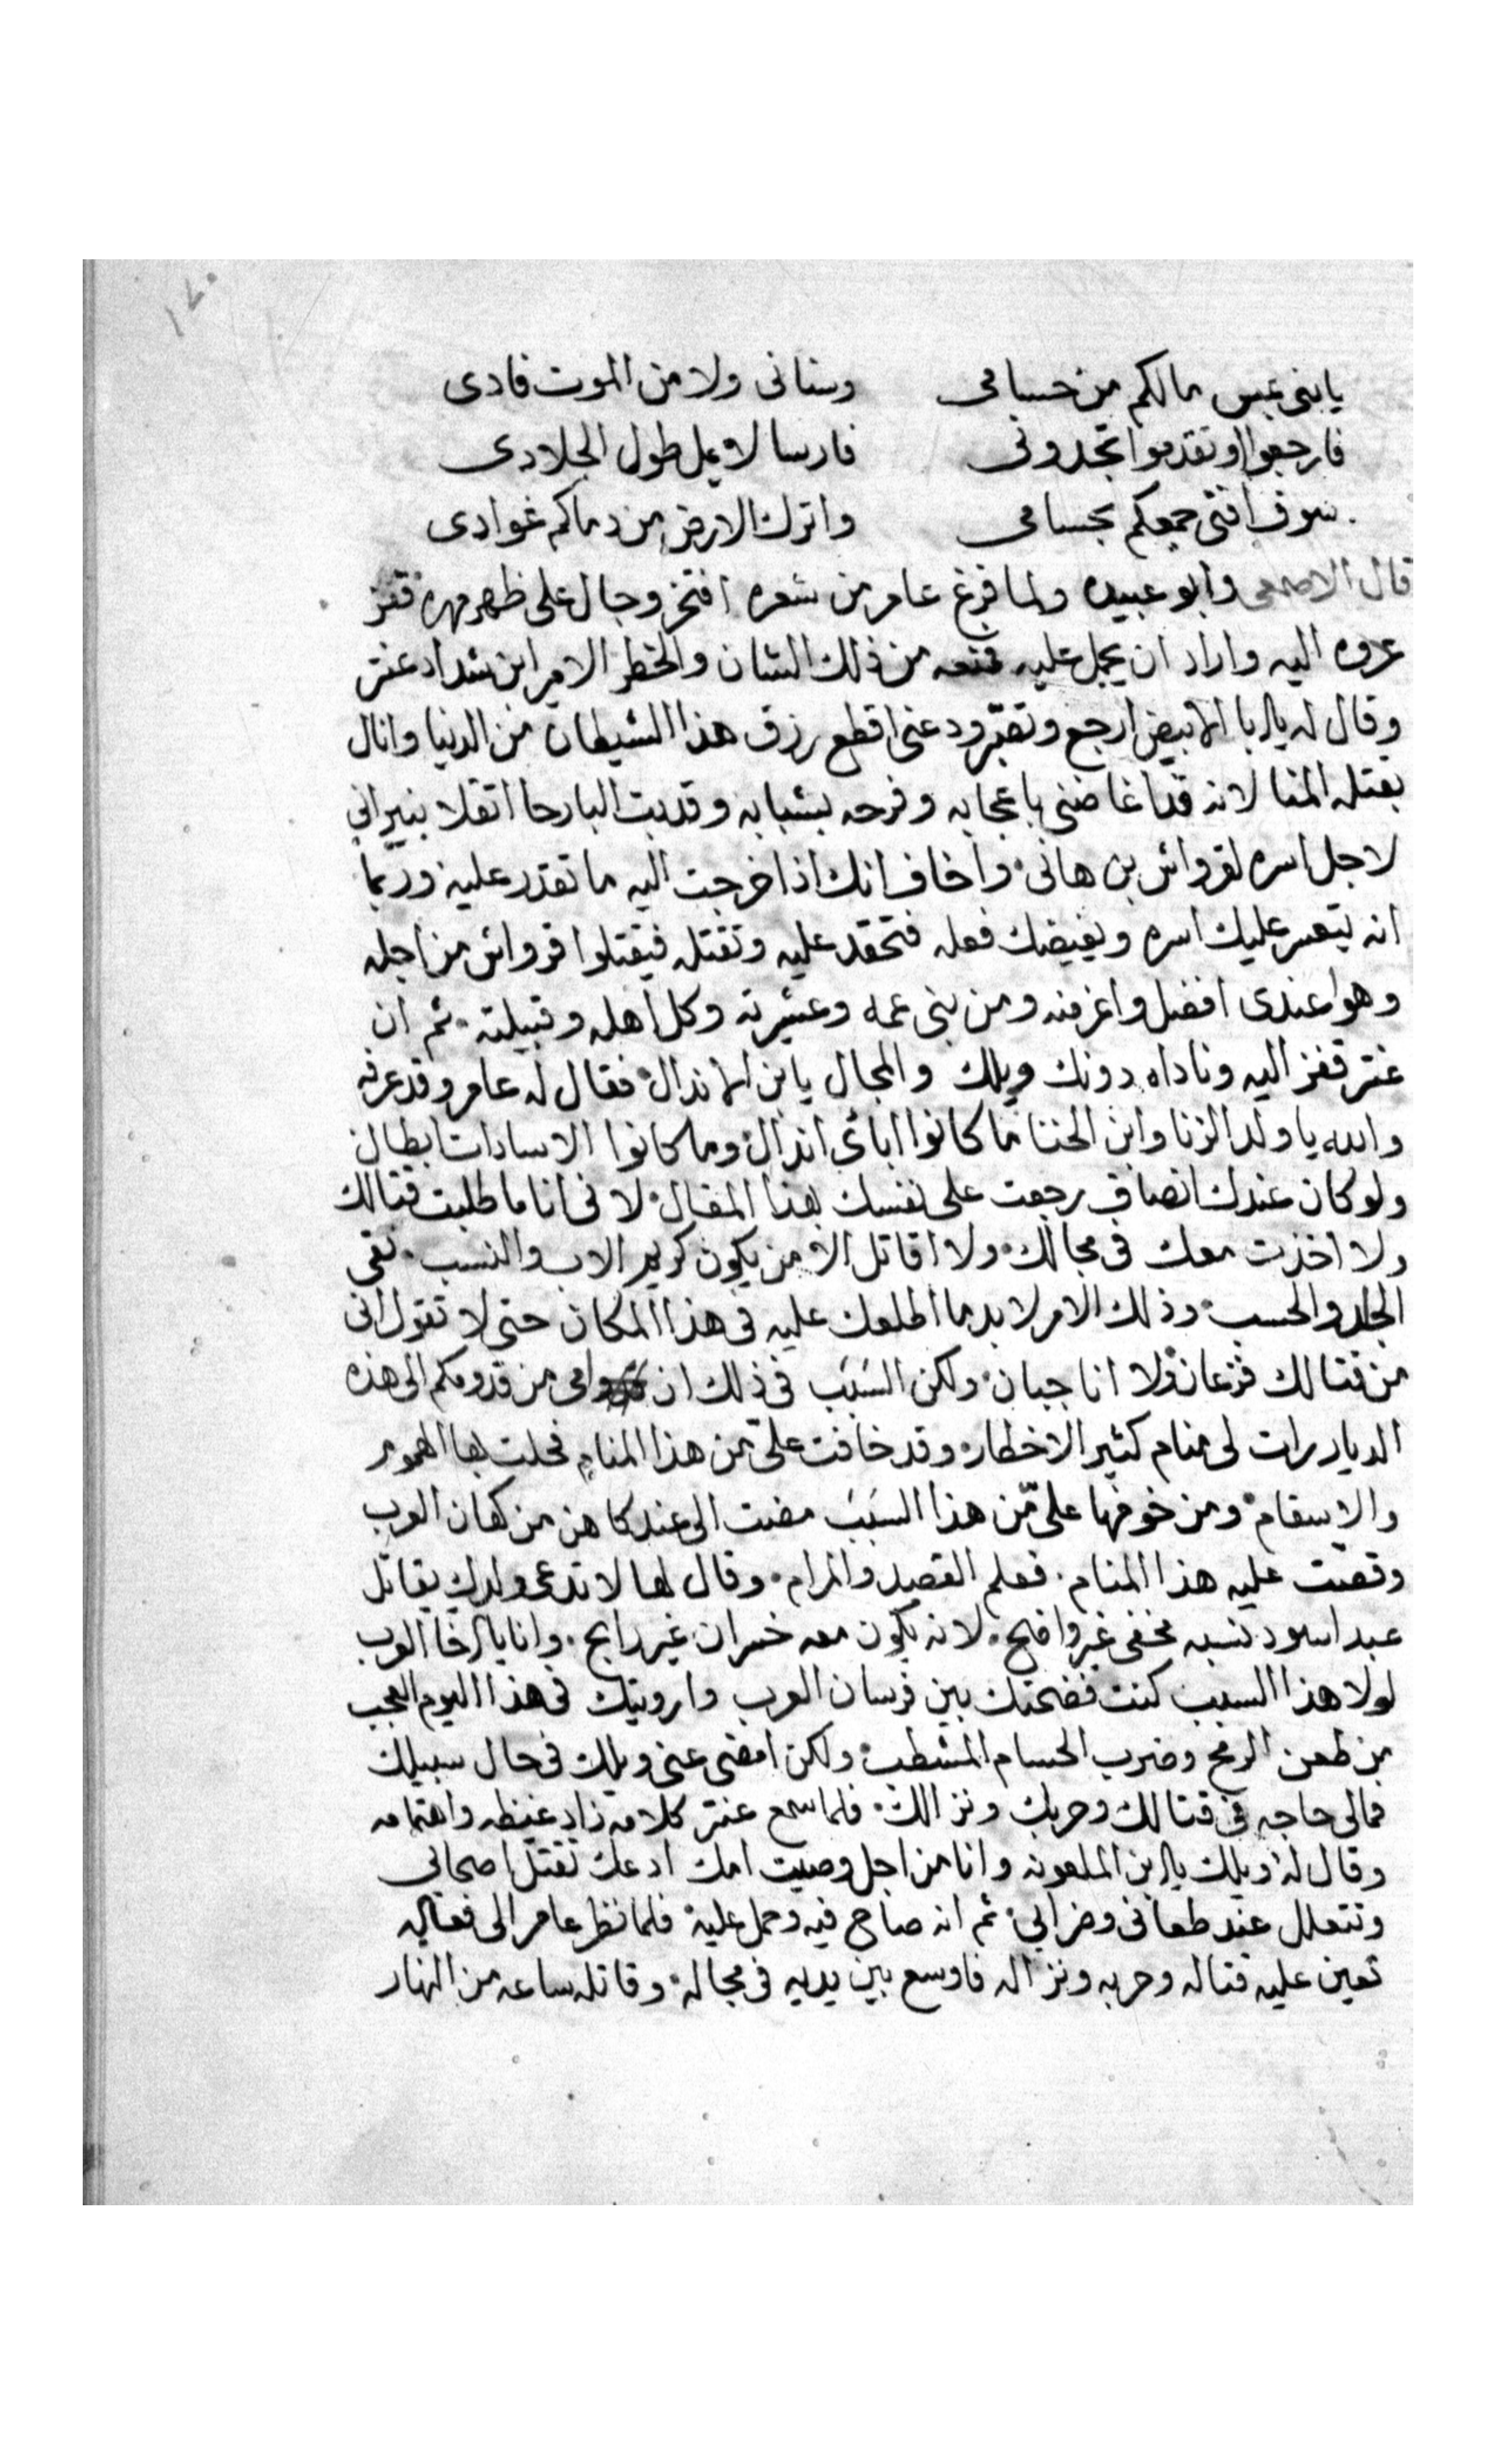 ١٢٠
يابنى عبس مالكم من حسامى وسنانى ولا من الموت فادى
فارجعوا او تقدموا تجدونى فارسا لا يمل طول الجلادى
سوف افنى جمعكم بحسامى واترك الارض من دماكم غوادى
قال الاصمعى وابو عبيده ولما فرغ عامر من شعره افتخر وجال على ظهر مهره فقفز
عروه اليه واراد ان يحمل عليه فمنعه من ذلك الشان والخطر الامير ابن شداد عنتر
وقال له يا ابا الابيض ارجع وتصبّر ودعنى اقطع رزق هذا الشيطان من الدنيا وانال
بقتله المنا لانه قد اغاضنى باعجابه وفرحه بشبابه وقد بت البارحا اتقلا بنيرانى
لاجل اسره لقرواش بن هانى واخاف انك اذا خرجت اليه ما تقدر عليه وربّما
انه يتعسر عليك اسره ويغيضك فعله فتحقد عليه وتقتله فيقتلوا قرواش من اجله
وهوا عندى افضل واعز منه ومن بنى عمه وعشيرته وكل اهله وقبيلته ثم ان
عنتر قفز اليه وناداه دونك ويلك والمجال يابن الانذال فقال له عامر وقد عرفه
والله يا ولد الزنا وابن الخنا ما كانوا اباىء انذال وما كانوا الا سادات ابطال
ولو كان عندك انصاف رجعت على نفسك بهذا المقال لانى انا ما طلبت قتالك
ولا اخذت معك فى مجالك ولا اقاتل الا من يكون كريم الاب والنسب نقى
الجد والحسب وذلك الامر لا بد ما اطلعك عليه فى هذا المكان حتى لا تقول انى
من قتالك فزعان ولا انا جبان ولكن السَبَب فى ذلك ان امى من قدومكم الى هذه
الديار رات لى منام كثير الاخطار وقد خافت علىّ من هذا المنام فحلت بها الهموم
والاسقام ومن خوفها علىّ من هذا السَبَب مضت الى عند كاهن من كهان العرب
وقصت عليه هذا المنام فعلم القصد والمرام وقال لها لا تدعى ولدك يقاتل
عبد اسود نسبه مخفى غير واضح لانه يكون معه خسران غير رابح وانا يا اخا العرب
لولا هذا السبب كنت فضحتك بين فرسان العرب واريتك فى هذا اليوم العجب
من طعن الرمح وضرب الحسام المشطب ولكن امضى عنى ويلك فى حال سبيلك
فمالى حاجه فى قتالك وحربك ونزالك فلما سمع عنتر كلامه زاد غيظه واهتمامه
وقال له ويلك يا ابن الملعونه وانا من اجل وصيت امك ادعك تقتل اصحابى
وتتعلل عند طعانى وضرابى ثم انه صاح فيه وحمل عليه فلما نظر عامر الى فعاله
تعين عليه قتاله وحربه ونزاله فاوسع بين يديه فى مجاله وقاتله ساعه من النهار